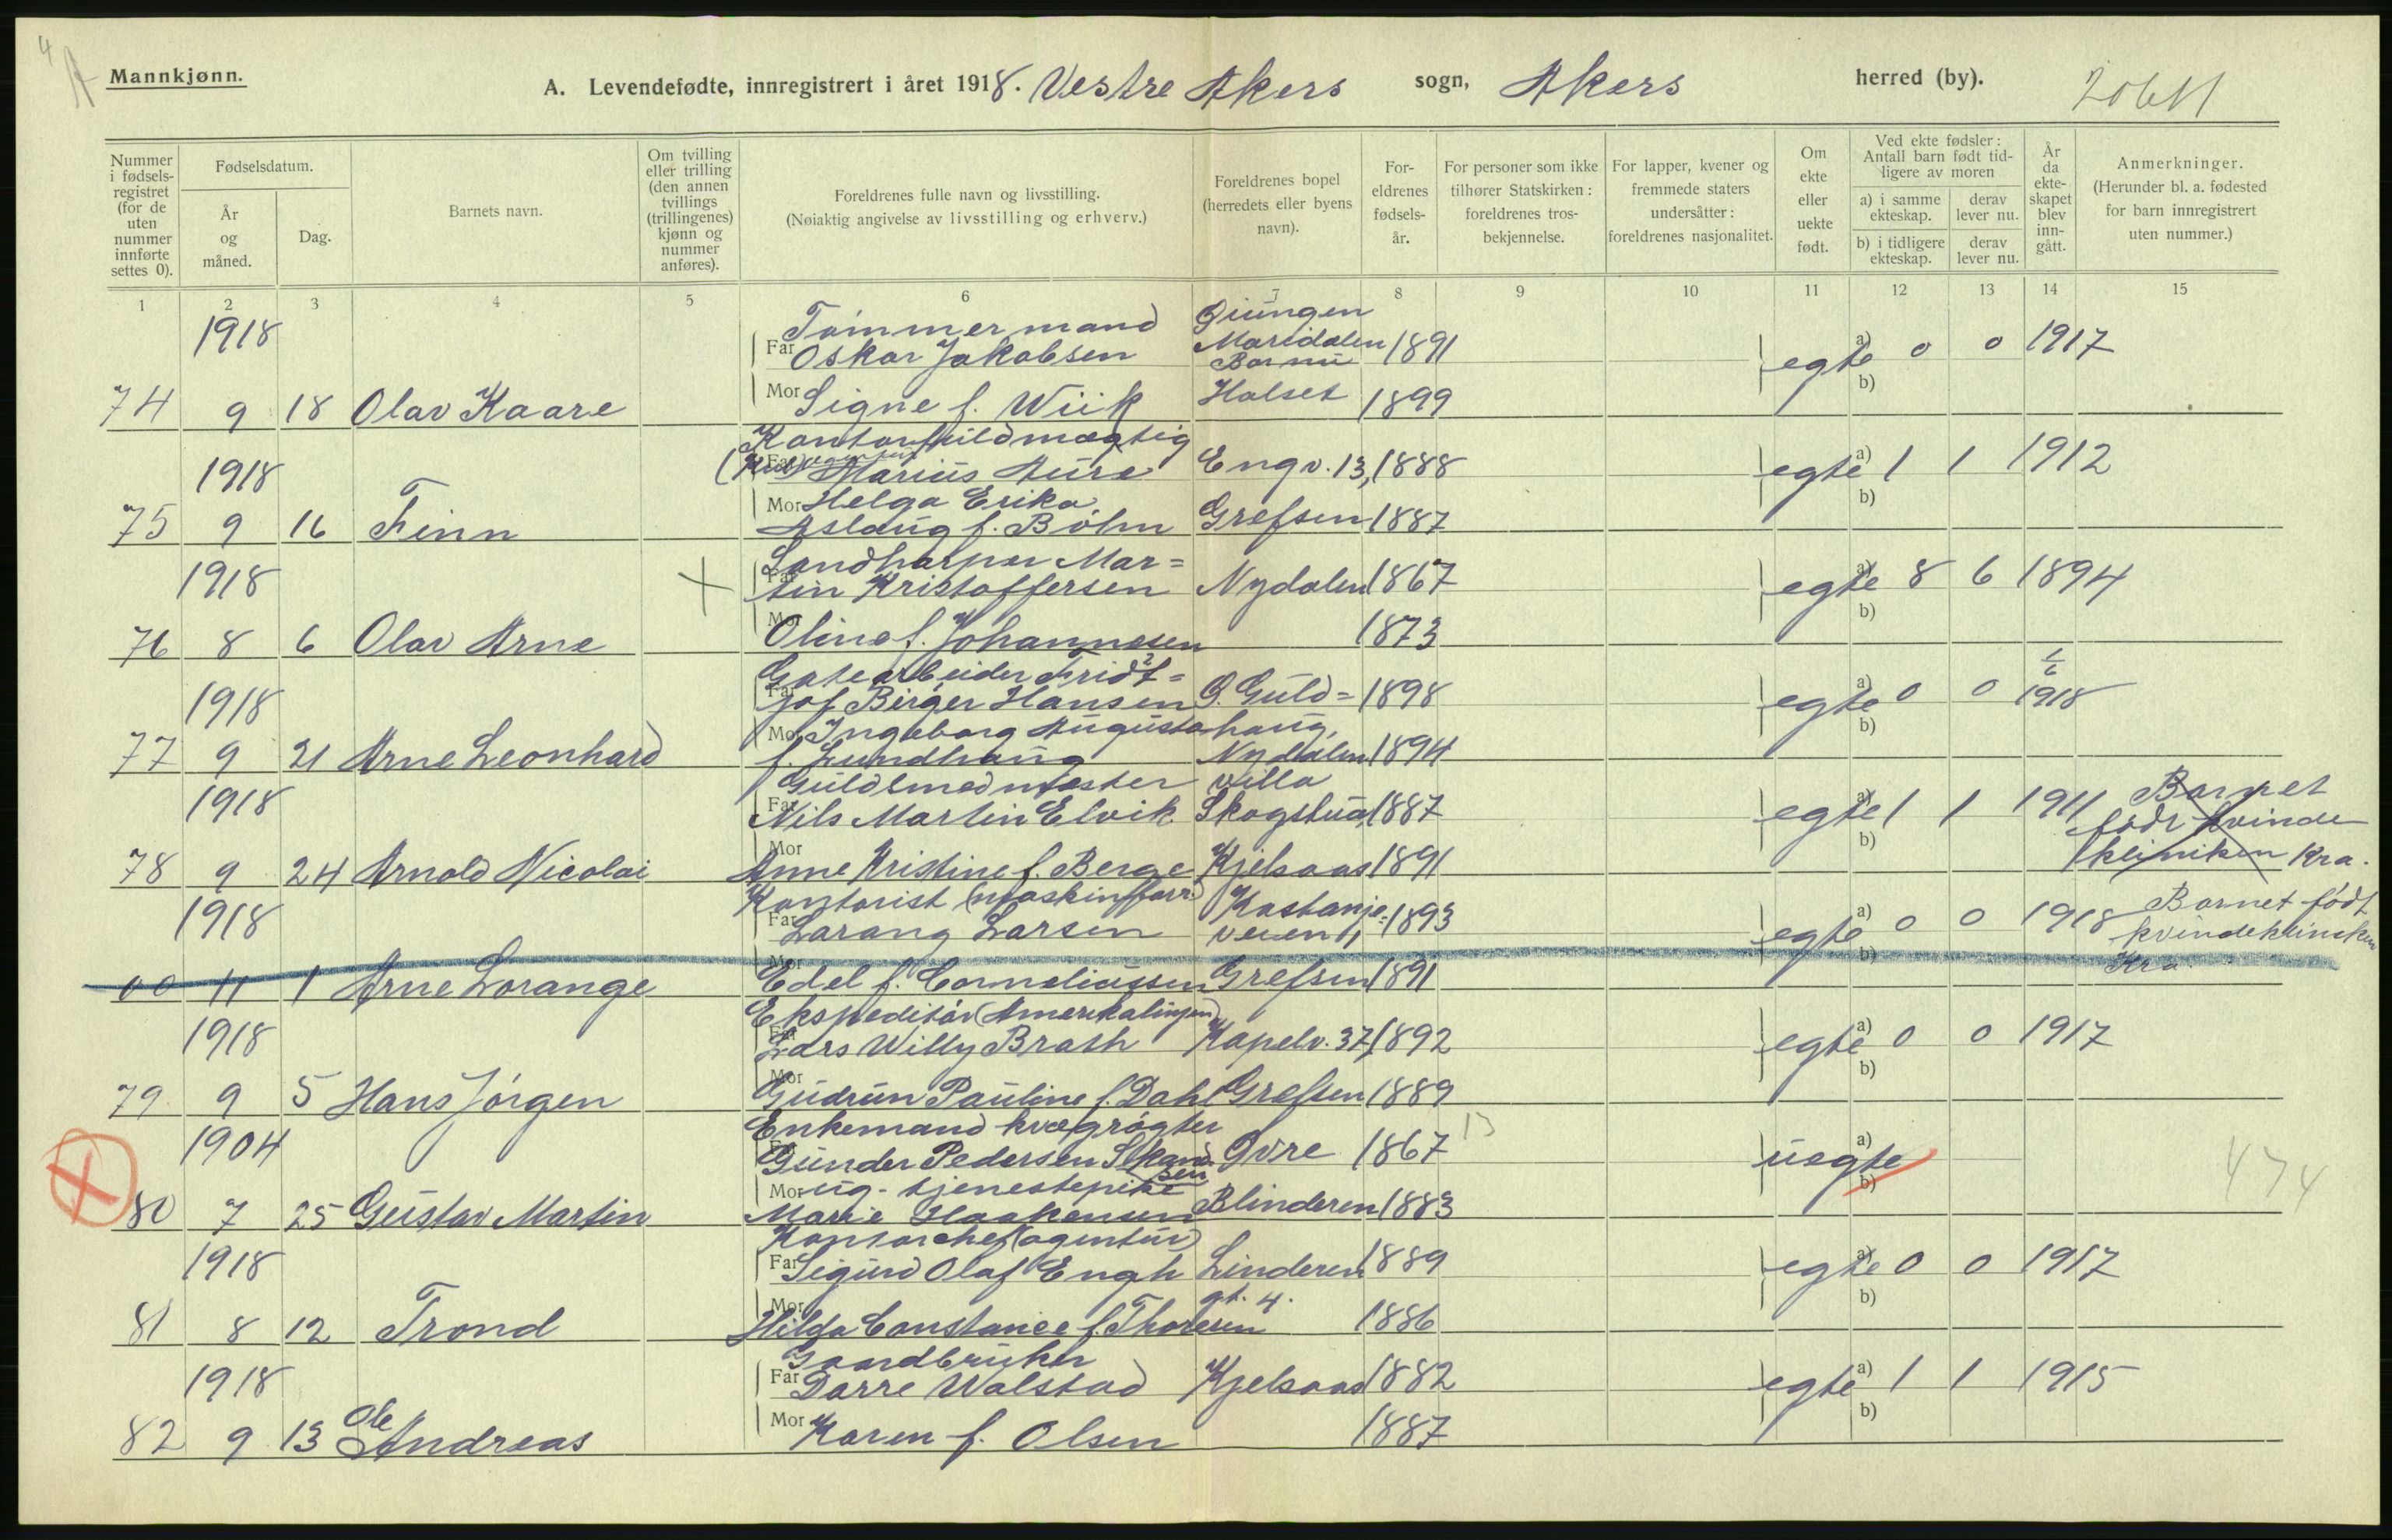 4
A
Mannkjønn.
A. Levendefødte, innregistrert i året 1918. Vestre Akers sogn, Akers herred (by).
Nummer i fødselsregistret (for de uten nummer innførte settes 0).
Fødselsdatum.
År og måned.
Dag.
Barnets navn.
Om tvilling eller trilling (den annen tvillings (trillingenes) kjønn og nummer anføres).
Foreldrenes fulle navn og livsstilling.
(Nøiaktig angivelse av livsstilling og erhverv.)
Foreldrenes bopel (herredets eller byens navn).
Foreldrenes fødselsår.
For personer som ikke tilhører Statskirken: foreldrenes trosbekjennelse.
For lapper, kvener og fremmede staters undersåtter: foreldrenes nasjonalitet.
Om ekte eller uekte født.
Ved ekte fødsler: Antall barn født tidligere av moren
a) i samme ekteskap.
derav lever nu.
b) i tidligere ekteskap.
derav lever nu.
År da ekteskapet blev inngått.
Anmerkninger.
(Herunder bl. a. fødested for barn innregistrert uten nummer.)
1 2 3 4 5 6 7 8 9 10 11 12 13 14 15
1918 Tømmermand
Far Oskar Jakobsen Maridalen 1891 egte a) 0 0 1917
b)
74 9 18 Olav Kaare Mor Signe f. Wiik 1899
1918 Kontorfuldmægtig
Far Marius Aure Engv. 13, 1888 egte a) 1 1 1912
Mor Helga Erika b)
75 9 16 Finn Aslaug f. Bøhm Grefsen 1887
1918 Mar=
Far tin Kristoffersen Nydalen 1867 egte a) 8 6 1894
b)
76 8 6 Olav Arne Mor Oline f. Johannesen 1873
Gatearbeider Fridt= 1/6
1918 Far jof Birger Hansen Ø. Guld= 1898 egte a) 0 0 1918
Mor Ingeborg Augusta haug, b)
77 9 21 Arne Leonhard f. Lundhaug Nydalen 1894
Guldsmedmester Villa Barnet
1918 Far Nils Martin Elvik Skogstua, 1887 egte a) 1 1 1911 født kvinde
b)
78 9 24 Arnold Nicolai Mor Anne Kristine f. Berge Kjelsaas 1891 kliniken Kra.
Kontorist (maskinforr.) Kastanje= Barnet født
1918 Far Larang Larsen veien 1, 1893 egte a) 0 0 1918 kvindekliniken
b) Kra.
00 11 1 Arne Lorange Mor Edel f. Corneliussen Grefsen 1891
Ekspeditør (Amerikalinjen)
1918 Far Lars Willy Brath Kapelv. 37, 1892 egte a) 0 0 1917
b)
79 9 5 Hans Jørgen Mor Gudrun Pauline f. Dahl Grefsen 1889
Enkemand kvægrøgter 13
1904 Far Gunder Pedersen Øvre 1867 uegte a)
Mor ug. tjenestepike b) 474
80 7 25 Gustav Martin Marie Haakensen Blinderen 1883
Kontorchef (agentur)
1918 Far Sigurd Olaf Engh Linderen 1889 egte a) 0 0 1917
gt. 4. b)
81 8 12 Trond Mor Hilda Constance f. Thoresen 1886
Gaardbruker
1918 Far Darre Walstad Kjelsaas 1882 egte a) 1 1 1915
b)
82 9 13 Ole Andreas Mor Karen f. Olsen 1887